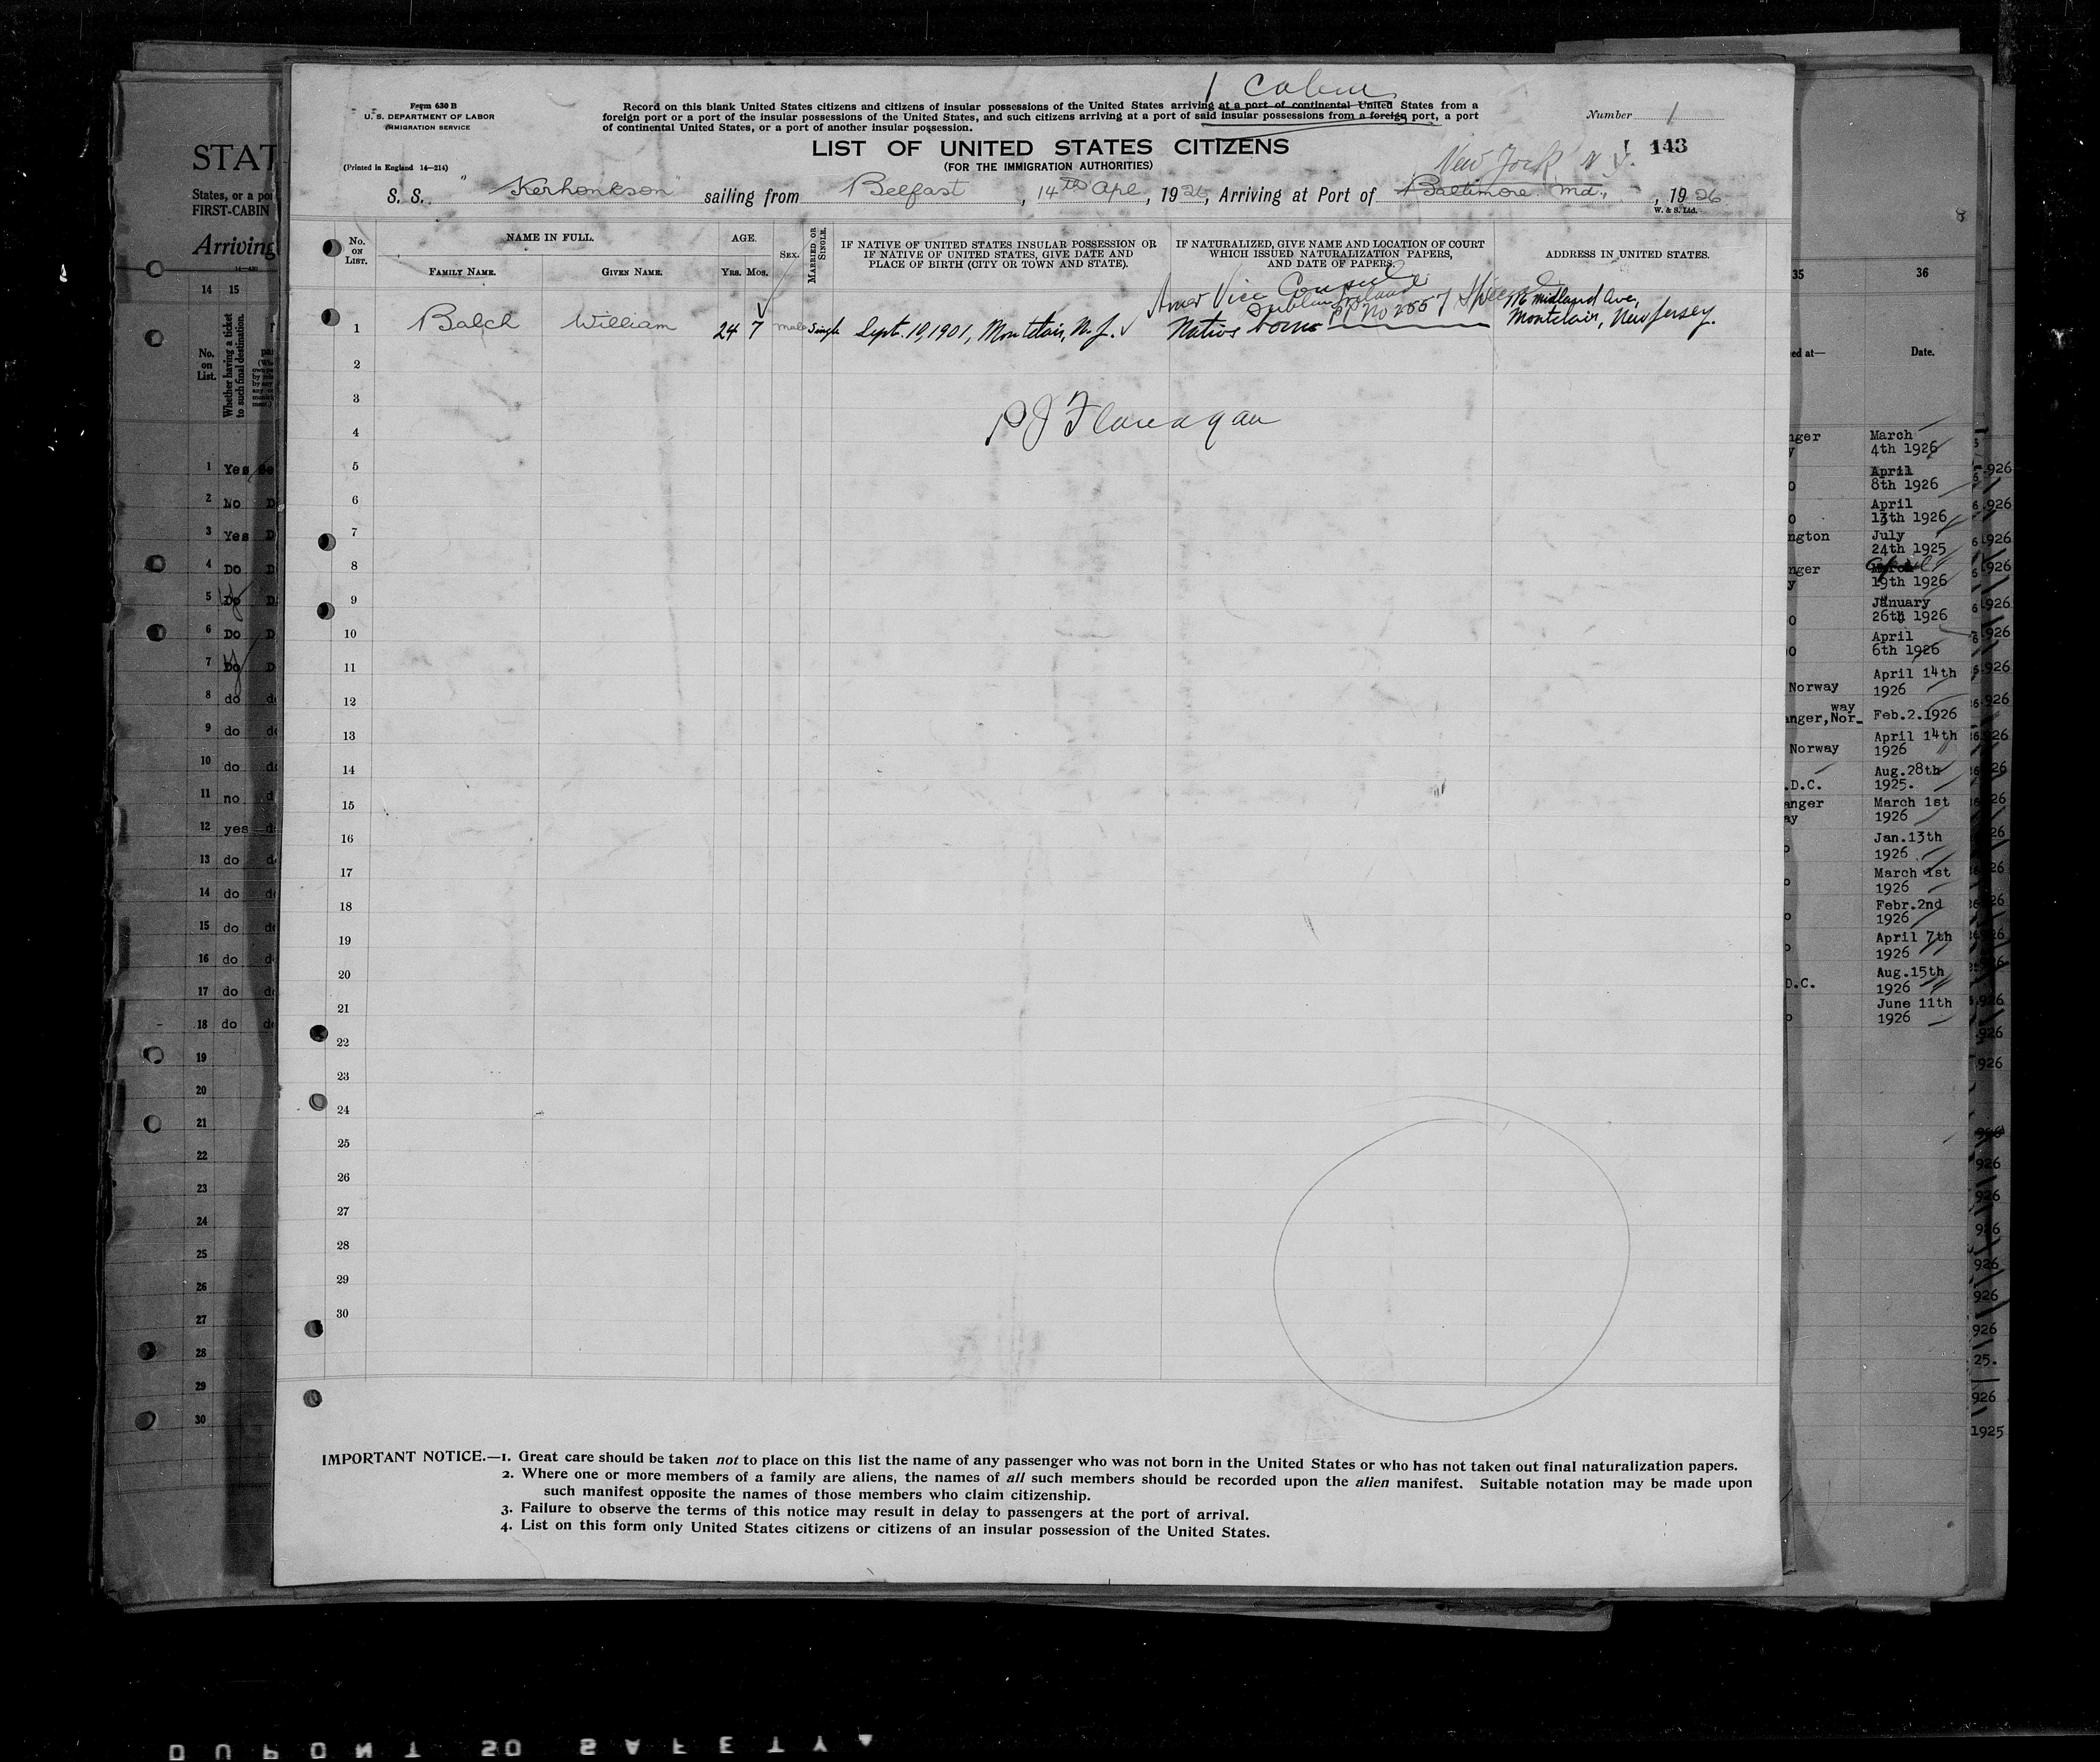 1 Cabin
Form 630 B
U. S. DEPARTMENT OF LABOR
IMMIGRATION SERVICE
Record on this blank United States citizens and citizens of insular possessions of the United States arriving at a port of continental United States from a
foreign port or a port of the insular possessions of the United States, and such citizens arriving at a port of said insular possessions from a foreign port, a port
of continental United States, or a port of another insular possession.
Number 1
LIST OF UNITED STATES CITIZENS
143
(Printed in England 14—214)
(FOR THE IMMIGRATION AUTHORITIES)
New York N.Y.
S. S. "Kerhonkson" sailing from Belfast, 14th Apl, 1926, Arriving at Port of Baltimore Md., 1926
W. & S. Ltd.
No. ON LIST.
NAME IN FULL.
FAMILY NAME.
GIVEN NAME.
AGE.
Yrs. Mos.
SEX.
MARRIED OR SINGLE.
IF NATIVE OF UNITED STATES INSULAR POSSESSION OR
IF NATIVE OF UNITED STATES, GIVE DATE AND
PLACE OF BIRTH (CITY OR TOWN AND STATE).
IF NATURALIZED, GIVE NAME AND LOCATION OF COURT
WHICH ISSUED NATURALIZATION PAPERS,
AND DATE OF PAPERS.
ADDRESS IN UNITED STATES.
Amer Vice Consul
Dublin Ireland
PP No 2557 Special
1 Balch William 24 7 male Single Sept. 19, 1901, Montclair, N.J. Native born
Midland Ave,
Montclair, New Jersey.
2
3
P J Flanagan
4
5
6
7
8
9
10
11
12
13
14
15
16
17
18
19
20
21
22
23
24
25
26
27
28
29
30
IMPORTANT NOTICE.—1. Great care should be taken not to place on this list the name of any passenger who was not born in the United States or who has not taken out final naturalization papers.
2. Where one or more members of a family are aliens, the names of all such members should be recorded upon the alien manifest. Suitable notation may be made upon
such manifest opposite the names of those members who claim citizenship.
3. Failure to observe the terms of this notice may result in delay to passengers at the port of arrival.
4. List on this form only United States citizens or citizens of an insular possession of the United States.
STAT
States, or a po
FIRST-CABIN
Arriving
14 15
No. on List.
Whether having a ticket
to such final destination.
1 Yes
2 No D
3 Yes D
4 Do D
5 Do D
6 Do D
7 Do D
8 do d
9 do d
10 do d
11 no d
12 yes d
13 do d
14 do d
15 do d
16 do d
17 do d
18 do d
19
20
21
22
23
24
25
26
27
28
29
30
35 36
ed at— Date.
nger March
y 4th 1926
April
o 8th 1926
April
o 13th 1926
ngton July
24th 1925
nger April
y 19th 1926
January
o 26th 1926
April
o 6th 1926
April 14th
Norway 1926
way
anger,Nor- Feb.2.1926
April 14th
Norway 1926
Aug.28th
.D.C. 1925.
anger March 1st
ay 1926
Jan.13th
1926
March 1st
1926
Febr.2nd
1926
April 7th
1926
Aug.15th
D.C. 1926
June 11th
1926
DUPONT SO SAFETY